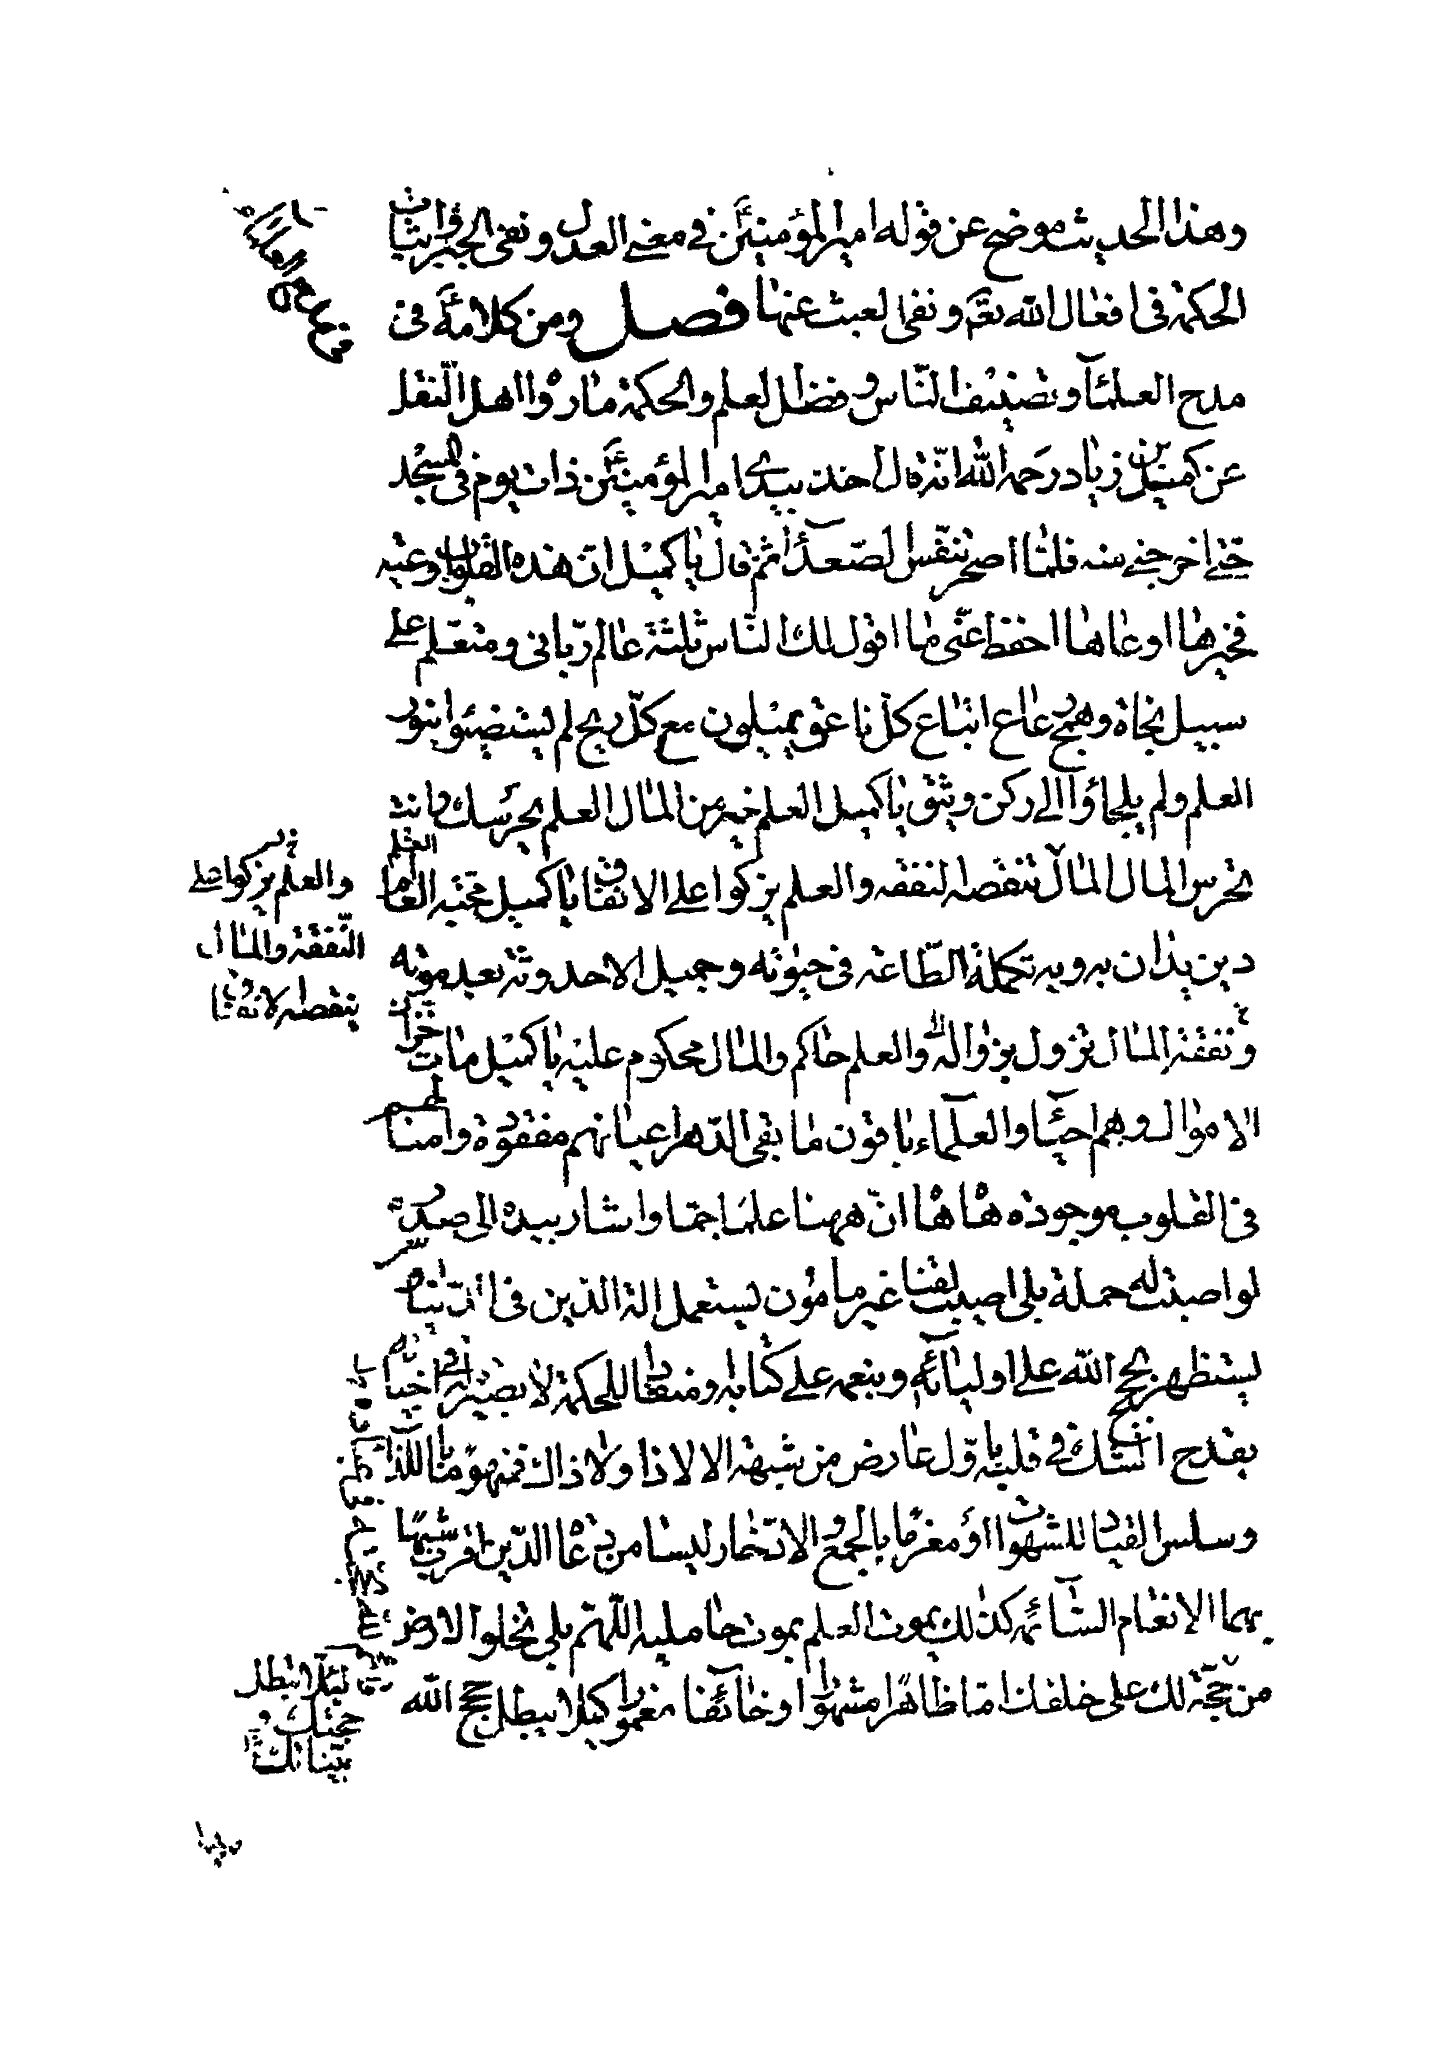 وهذا الحديث موضح عن قوله امير المؤمنين ع في معنى العدل ونفي الجبر واثبات
الحكمة في افعال الله تعم ونفى العبث عنها فصل ومن كلامه ع في
مدح العلماء وتصنيف الناس وفضل العلم والحكمة ما رواه اهل النقل
عن كميل بن زياد رحمه الله انه قال اخذ بيدى امير المؤمنين ع ذات يوم في المسجد
حتى اخرجني منه فلما اصحر تنفس الصعداء ثم قال يا كميل ان هذه القلوب اوعية
فخيرها اوعاها احفظ عنى ما اقول لك الناس ثلثة عالم ربانى ومتعلم على
سبيل نجاة وهمج رعاع اتباع كل ناعق يميلون مع كل ريح لم يستضيئوا بنور
العلم ولم يلجاؤا الى ركن وثيق يا كميل العلم خير من المال العلم يحرسك وانت
تحرس المال المال تنقصه النفقة والعلم يزكوا على الانفاق يا كميل محبة العالم
العلم
دين يدان به وبه تكملة الطاعة في حيوته وجميل الاحدوثة بعد موته
ومنفعة المال تزول بزواله والعلم حاكم والمال محكوم عليه يا كميل مات خزان
الاموال وهم احياء والعلماء باقون ما بقى الدهر اعيانهم مفقودة وامثالهم
في القلوب موجوده هاه هاه ان ههنا علما جما واشار بيده الى صدره
لو اصبت له حملة بلى اصيب لقنا غير مامون يستعمل الة الدين في الدنيا
يستظهر بحجج الله على اوليائه وبنعمه على كتابه ومنقادا للحكمة لا بصيرة له في احنائه
يقدح الشك في قلبه باول عارض من شبهة الا لا ذا ولا ذاك فمنهوما باللذات
وسلس القياد للشهوات او مغرما بالجمع والادخار ليسا من رعاة الدين اقرب شبها
بهما الانعام السائمة كذلك يموت العلم بموت حامليه اللهم بلى لا تخلوا الارض
من حجة لك على خلقك اما ظاهرا مشهورا او خائفا مغمورا كيلا تبطل حجج الله
والعلم يزكوا على
النفقة والمال
ينقصه الانفاق
لئلا تبطل
حججك و
بيناتك